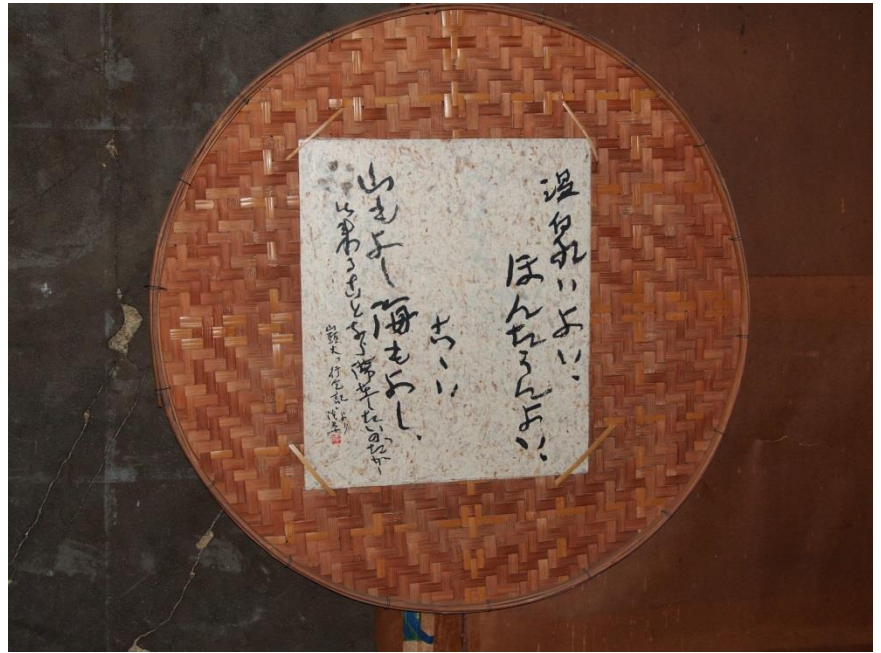 温泉はよい、
ほんたうによい、
こゝは
山もよし海もよし、
出来ることなら滞在したいのだが
山頭火の行乞記より